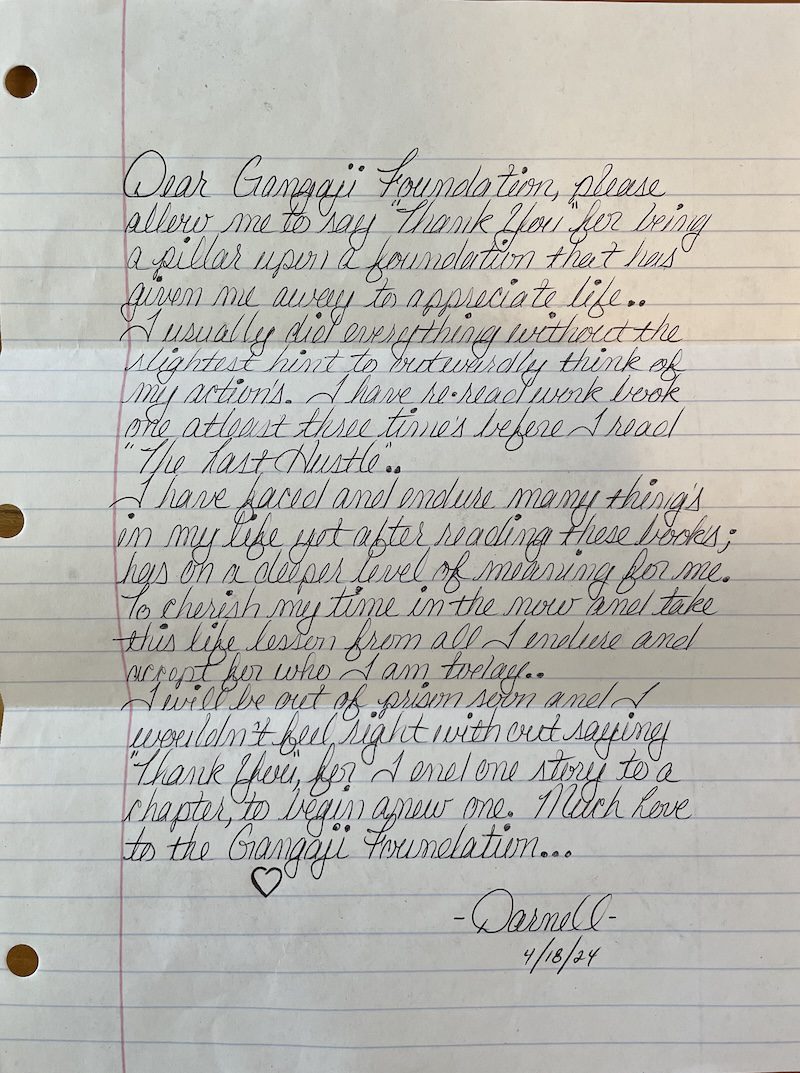 Dear Gangaji Foundation, please
allow me to say "Thank You" for being
a pillar upon a foundation that has
given me away to appreciate life..
I usually did everything without the
slightest hint to outwardly think of
my action's. I have re-read work book
one atleast three time's before I read
"The Last Hustle"..
I have faced and endure many thing's
in my life yet after reading these book's;
has on a deeper level of meaning for me.
To cherish my time in the now and take
this life lesson from all I endure and
accept for who I am today..
I will be out of prison soon and I
wouldn't feel right with out saying
"Thank You", for I end one story to a
chapter, to begin anew one. Much Love
to the Gangaji Foundation...
♡
-Darnell-
4/18/24